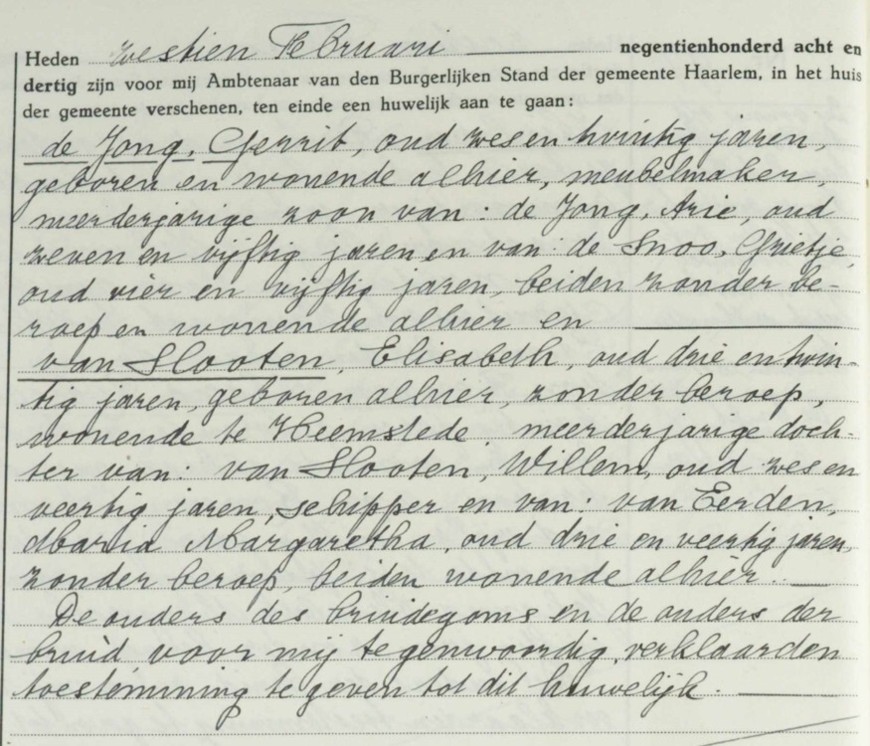 Heden zestien Februari negentienhonderd acht en
dertig zijn voor mij Ambtenaar van den Burgerlijken Stand der gemeente Haarlem, in het huis
der gemeente verschenen, ten einde een huwelijk aan te gaan:
de Jong, Gerrit, oud zes en twintig jaren,
geboren en wonende alhier, meubelmaker,
meerderjarige zoon van: de Jong, Arie, oud
zeven en vijftig jaren en van: de Snoo, Grietje,
oud vier en vijftig jaren, beiden zonder be-
roep en wonende alhier en
van Slooten, Elisabeth, oud drie en twin-
tig jaren, geboren alhier, zonder beroep,
wonende te Heemstede, meerderjarige doch-
ter van: van Slooten, Willem, oud zes en
veertig jaren, schipper en van: van Eerden,
Maria Margaretha, oud drie en veertig jaren,
zonder beroep, beiden wonende alhier.
De ouders des bruidegoms en de ouders der
bruid voor mij tegenwoordig, verklaarden
toestemming te geven tot dit huwelijk.